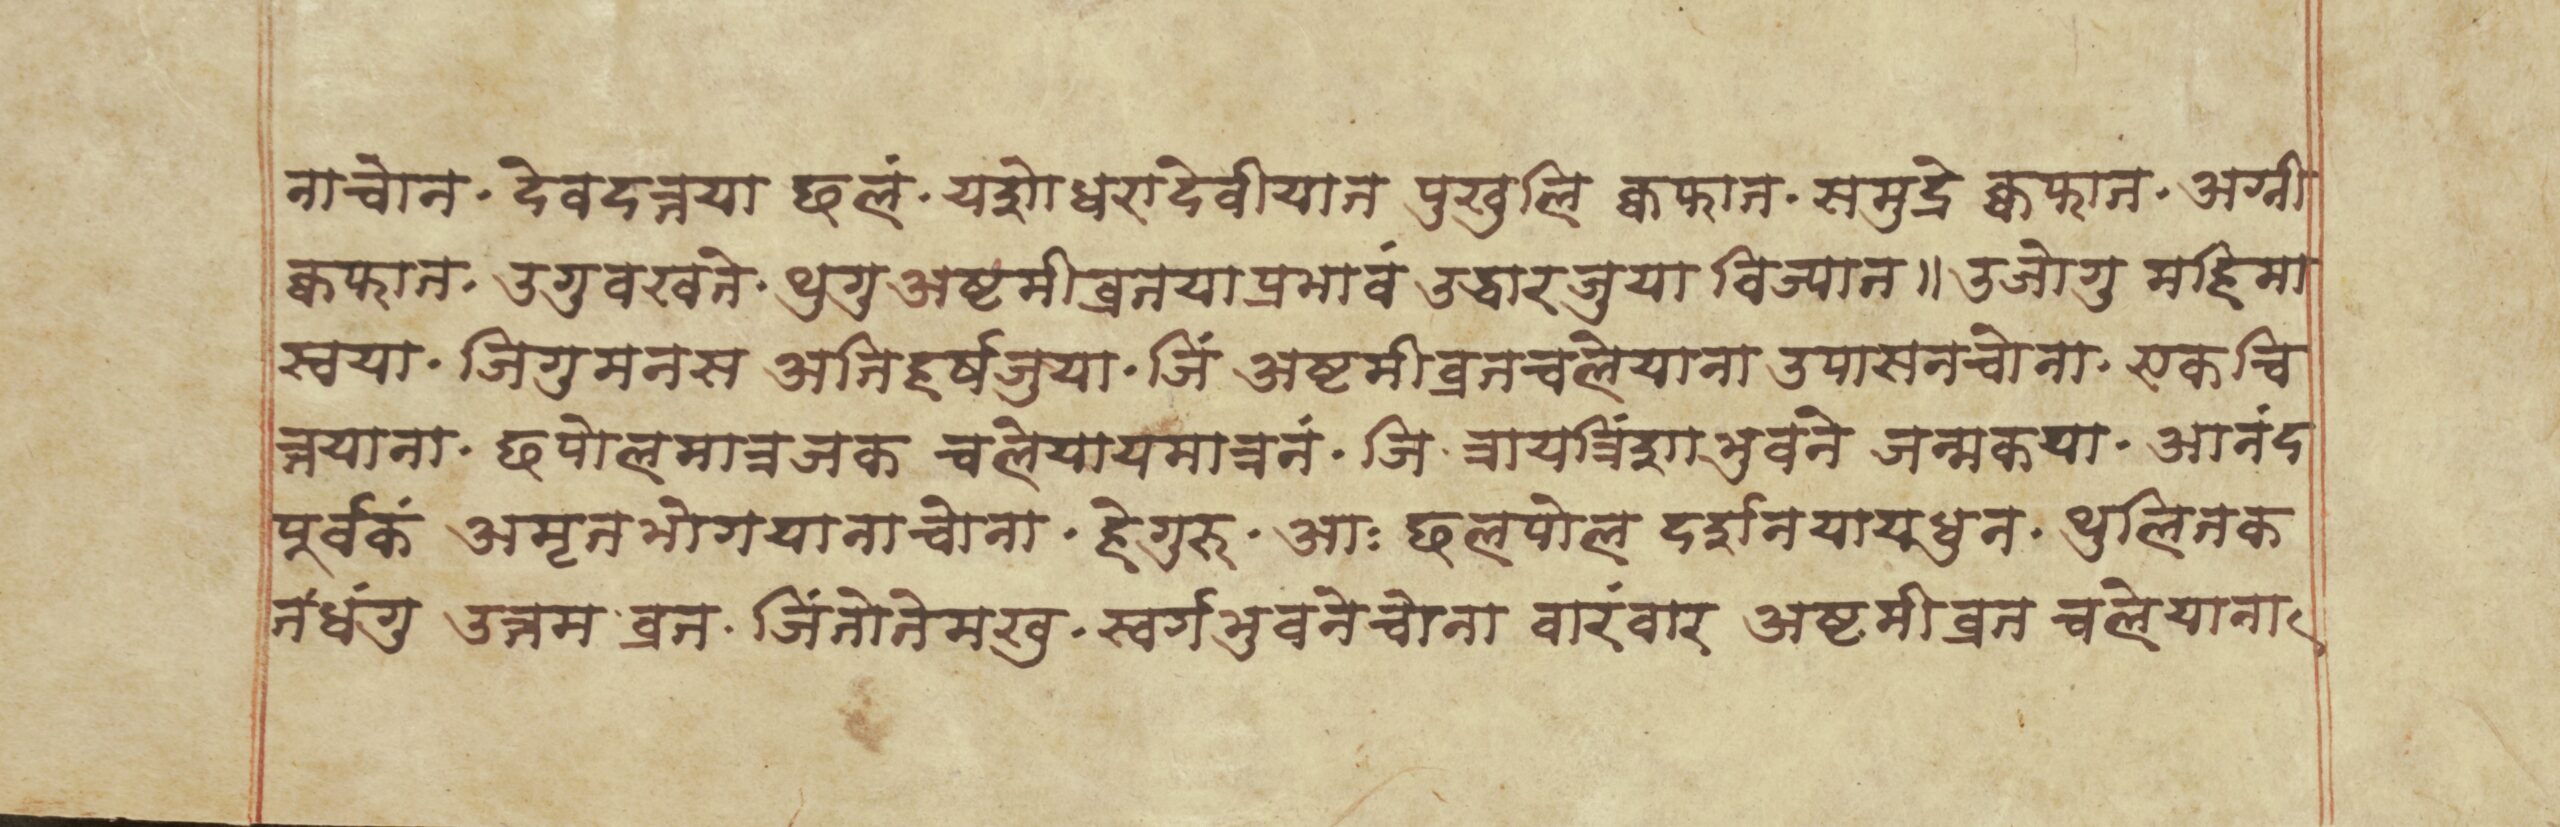 नाचोन. देवदत्तया छलं. यशोधरादेवीयात पुखुलि क्वफात. समुद्रे क्वफात. अग्नी
क्वफात. उगु वखते. थुगु अष्टमीव्रतया प्रभावं उद्धारजुया विज्यात॥ उजोगु महिमा
स्वया. जिगु मनस अतिहर्षजुया. जिं अष्टमीव्रतचलेयाना उपासनचोना. एकचि
त्तयाना. छपोलमात्रजक चलेयायमात्रनं. जि त्रायत्रिंशाभुवने जन्मकया. आनंद
पूर्वकं अमृतभोगयानाचोना. हेगुरु. आः छलपोल दर्शनयायधुन. थुलितक
तंधंगु उत्तम व्रत. जिंतोतेमखु. स्वर्गभुवनेचोना वारंवार अष्टमीव्रत चलेयाना